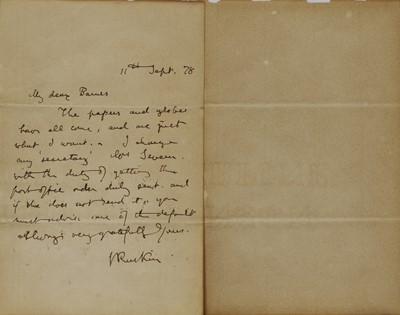 11th Sept. 78
My dear Barnes
The papers and globe
have all come, and are just
what I want. I charge
my secretary Mrs Severn
with the duty of getting the
post office order duly sent. and
if she does not send it, you
must advise me of the default
always very gratefully Yours.
JRuskin